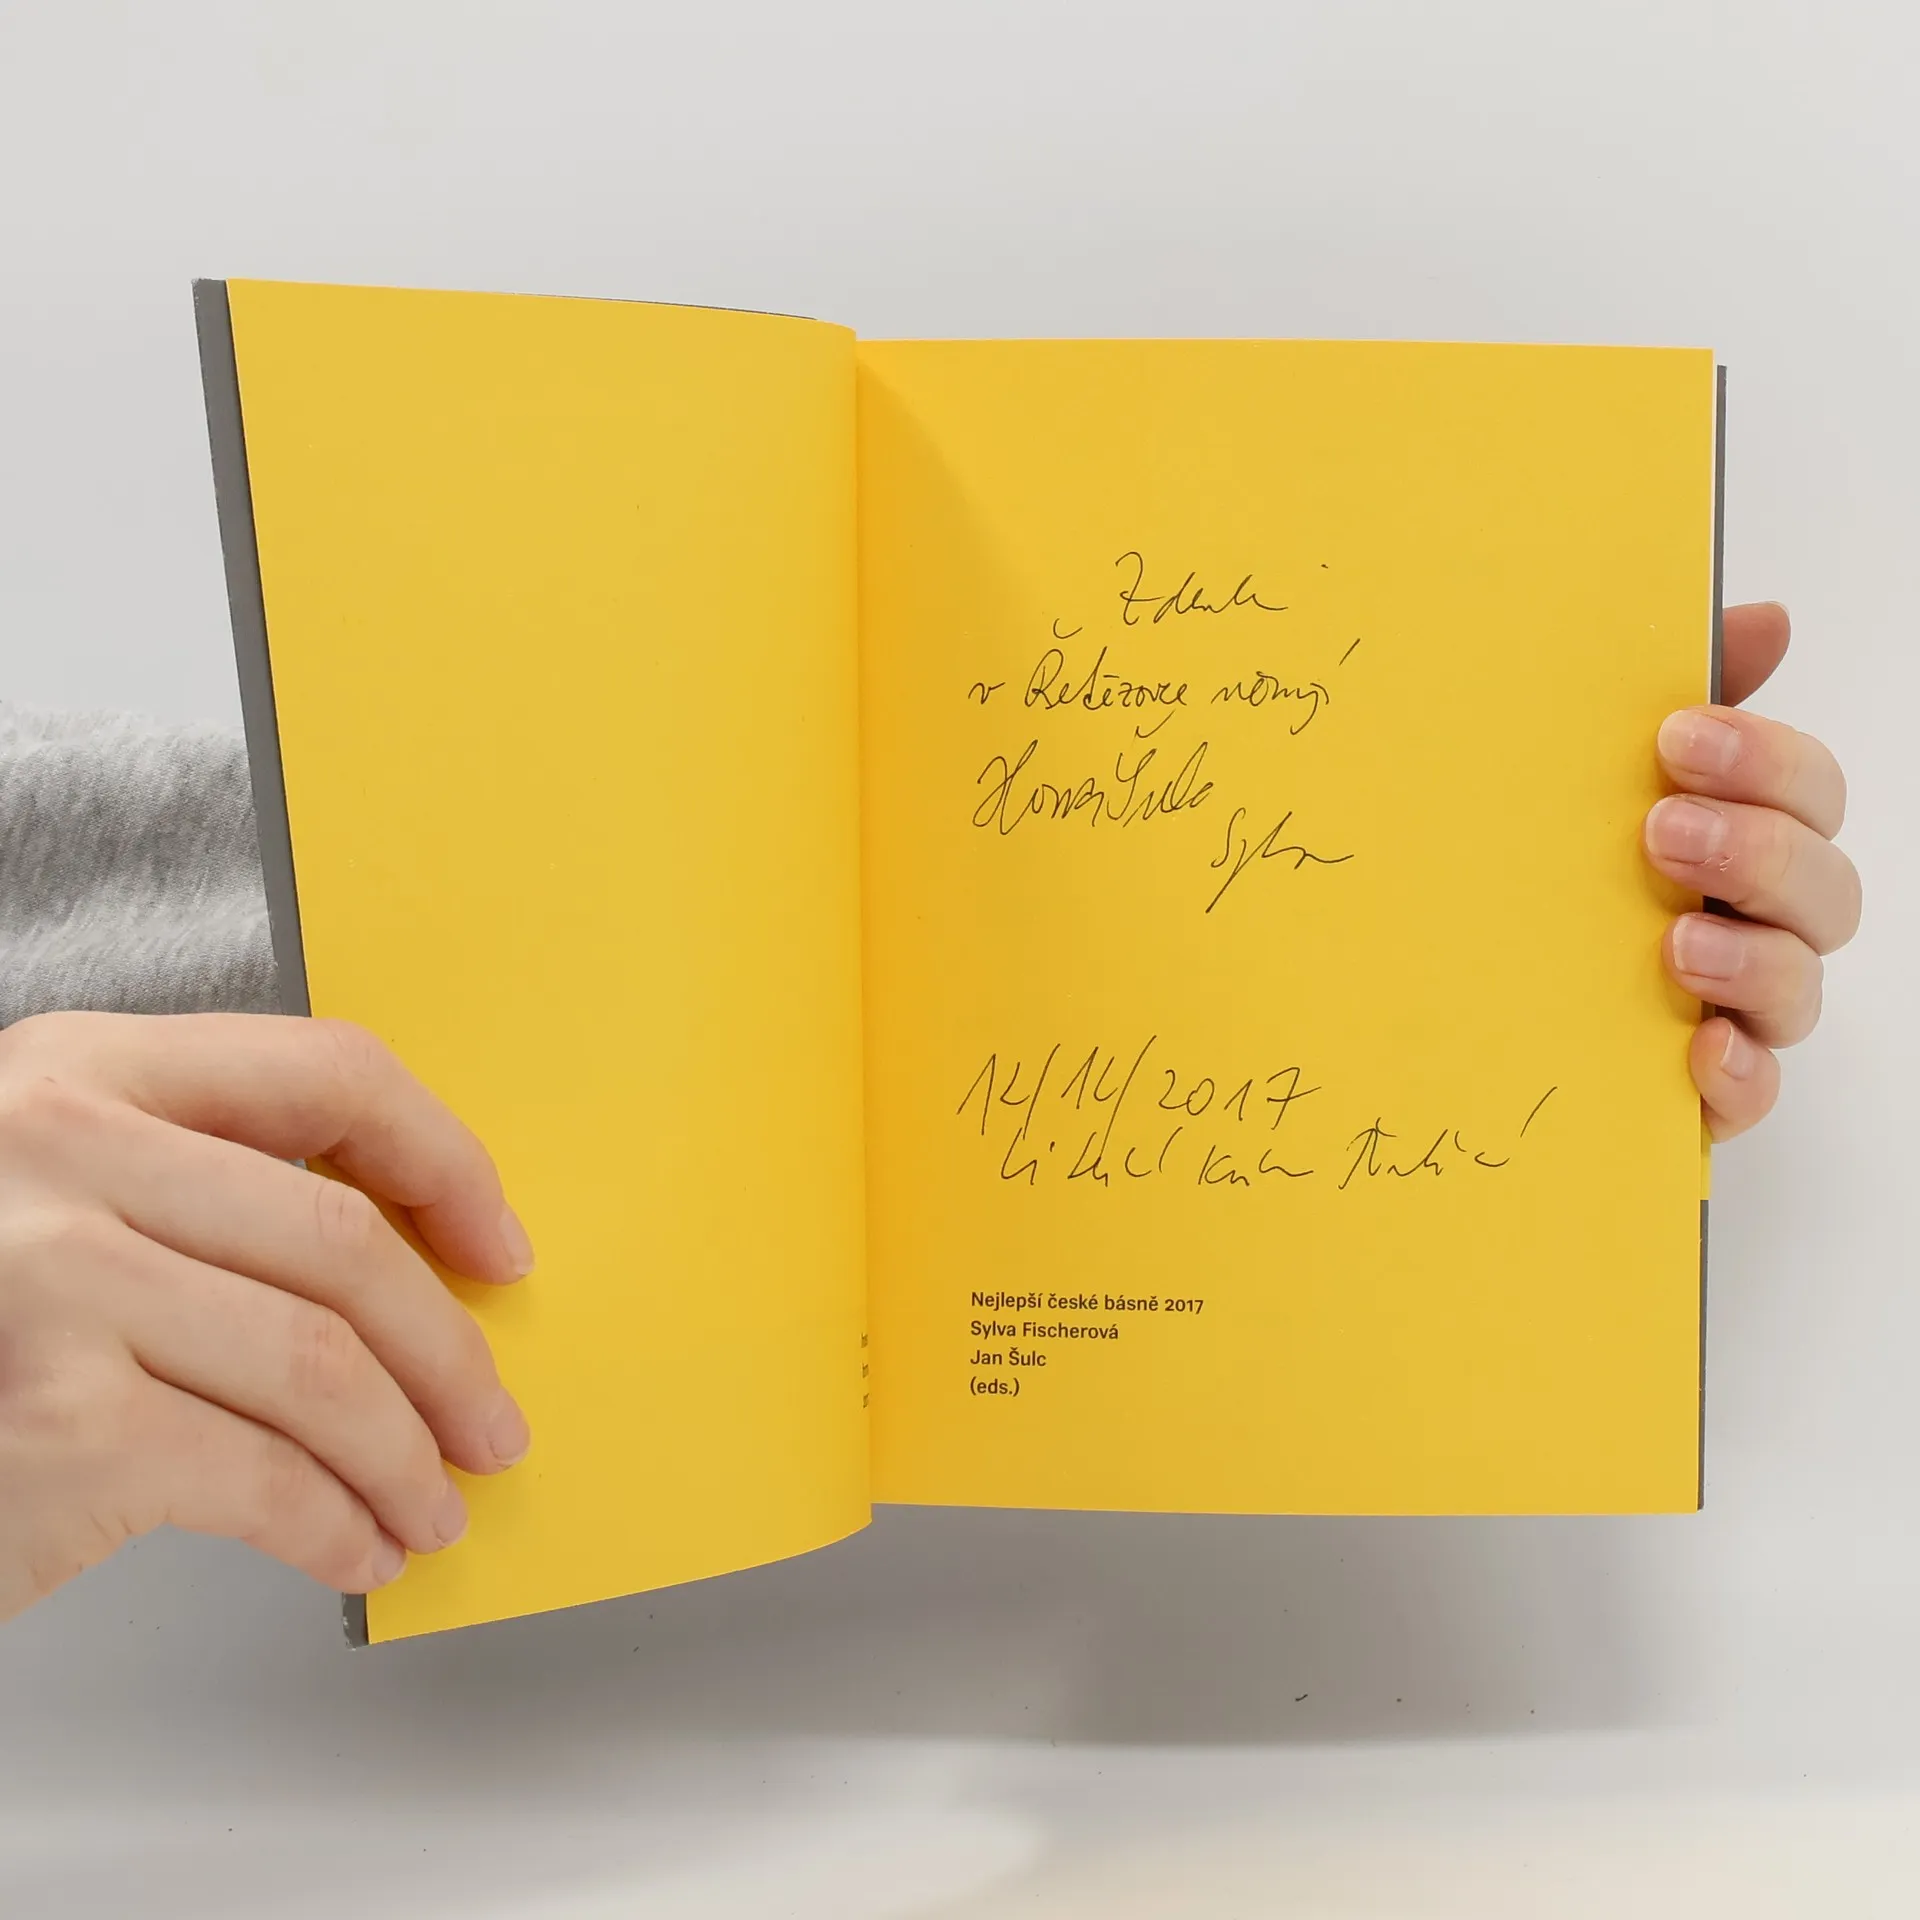 Zdence
v Řetězovce věrný
Honza Šulc
Sylva
12/12/2017
Nejlepší české básně 2017
Sylva Fischerová
Jan Šulc
(eds.)